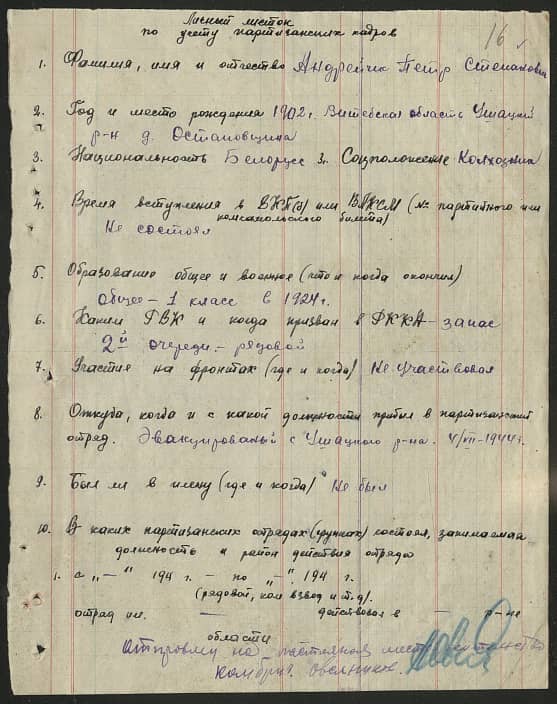 Личный листок
по учету партизанских кадров
16
1. Фамилия, имя и отчество Андрейчик Петр Степанович
2. Год и место рождения 1902 г. Витебская область Ушацкий
р-н д. Остановщина
3. Национальность Белорусс 3. Соцположение Колхозник
4. Время вступления в ВКП(б) или ВЛКСМ (№ партийного или
комсомольского билета)
Не состоял
5. Образование общее и военное (что и когда окончил)
общее – 1 класс в 1924 г.
6. Каким РВК и когда призван в РККА – запас
2й очереди – рядовой
7. Участие на фронтах (где и когда) Не участвовал
8. Откуда, когда и с какой должности прибыл в партизанский
отряд. Эвакуированый с Ушацкого р-на. 4/VII-1944 г.
9. Был ли в плену (где и когда) Не был
10. В каких партизанских отрядах (группах) состоял, занимаемая
должность и район действия отряда
1. с „—“ 194 г. – по „—“ 194 г.
(рядовой, ком взвод и т.д.)
отряд им. — действовал в — р-не
области
на место
комбриг. Овсянников.